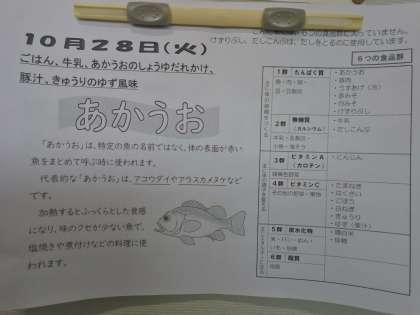 ６つの食品群に入っていません。
けずりぶし、だしこんぶは、だしをとるのに使用しています。
１０月２８日(火)
ごはん、牛乳、あかうおのしょうゆだれかけ、
豚汁、きゅうりのゆず風味
あかうお
「あかうお」は、特定の魚の名前ではなく、体の表面が赤い
魚をまとめて呼ぶ時に使われます。
代表的な「あかうお」は、アコウダイやアラスカメヌケなど
です。
加熱するとふっくらとした食感
になり、味のクセが少ない魚で、
塩焼きや煮付けなどの料理に使
われます。
６つの食品群
１群 たんぱく質
魚・肉・卵・
豆・豆製品
・あかうお
・豚肉
・うすあげ
・赤みそ
・白みそ
・けずりぶし
２群 無機質
(カルシウム)
牛乳・乳製品・
小魚・海そう
・牛乳
・だしこんぶ
３群 ビタミンA
(カロテン)
緑黄色野菜
・にんじん
４群 ビタミンC
その他の野菜・果物
・たまねぎ
・はくさい
・ごぼう
・白ねぎ
・きゅうり
・ゆず(果汁)
５群 炭水化物
米・パン・めん・
いも・砂糖
・精白米
・砂糖
６群 脂質
油脂